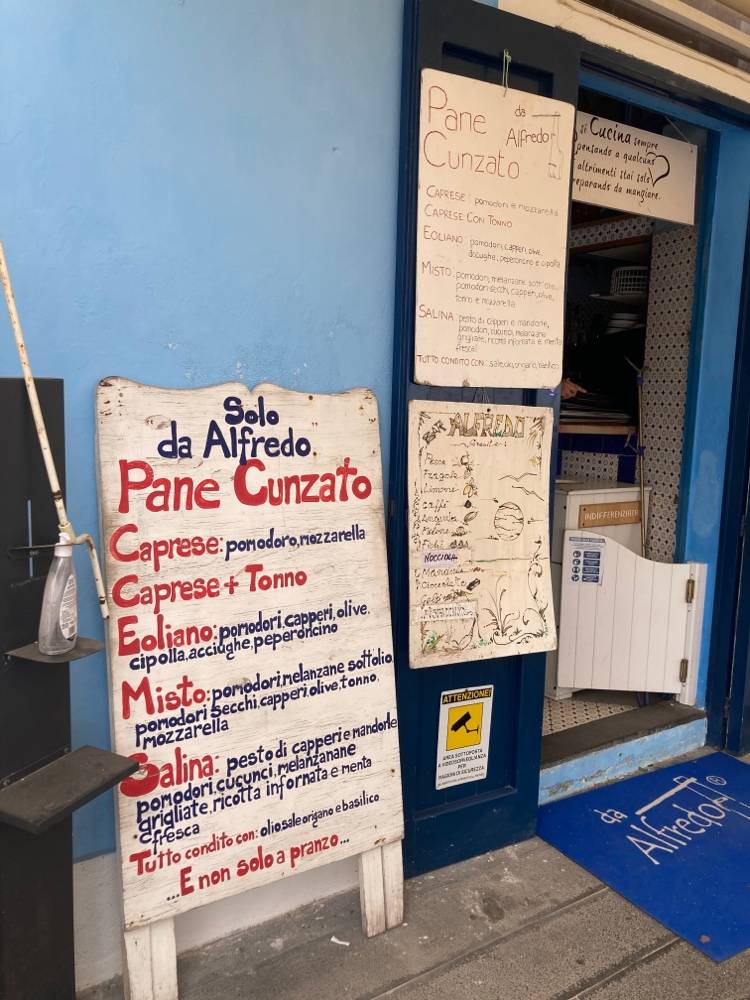 Solo
da Alfredo
Pane Cunzato
Caprese: pomodoro, mozzarella
Caprese + Tonno
Eoliano: pomodori, capperi, olive,
cipolla, acciughe, peperoncino
Misto: pomodori, melanzane sott'olio,
pomodori secchi, capperi, olive, tonno,
mozzarella
Salina: pesto di capperi e mandorle
pomodori, cucunci, melanzanane
grigliate, ricotta infornata e menta
fresca
Tutto condito con: olio sale origano e basilico
...E non solo a pranzo...
Pane da
Cunzato Alfredo
CAPRESE: pomodori e mozzarella
CAPRESE CON TONNO
EOLIANO: pomodori, capperi, olive,
acciughe, peperoncino e cipolla
MISTO: pomodori, melanzane sott'olio,
pomodori secchi, capperi, olive,
tonno e mozzarella
SALINA: pesto di capperi e mandorle,
pomodori, cucunci, melanzane
grigliate, ricotta infornata e menta
fresca
TUTTO CONDITO CON: sale, olio, origano, basilico
si Cucina sempre
pensando a qualcuno
altrimenti stai solo
preparando da mangiare.
BAR ALFREDO
Granite:
Pesca
Fragola
Limone
caffè
Anguria
Melone
Fichi
NOCCIOLA
Mandorla
Cioccolato
Gelsi
PISTACCHIO
INDIFFERENZIATA
ATTENZIONE!
AREA SOTTOPOSTA
A VIDEOSORVEGLIANZA
PER
RAGIONI DI SICUREZZA
da
Alfredo ®